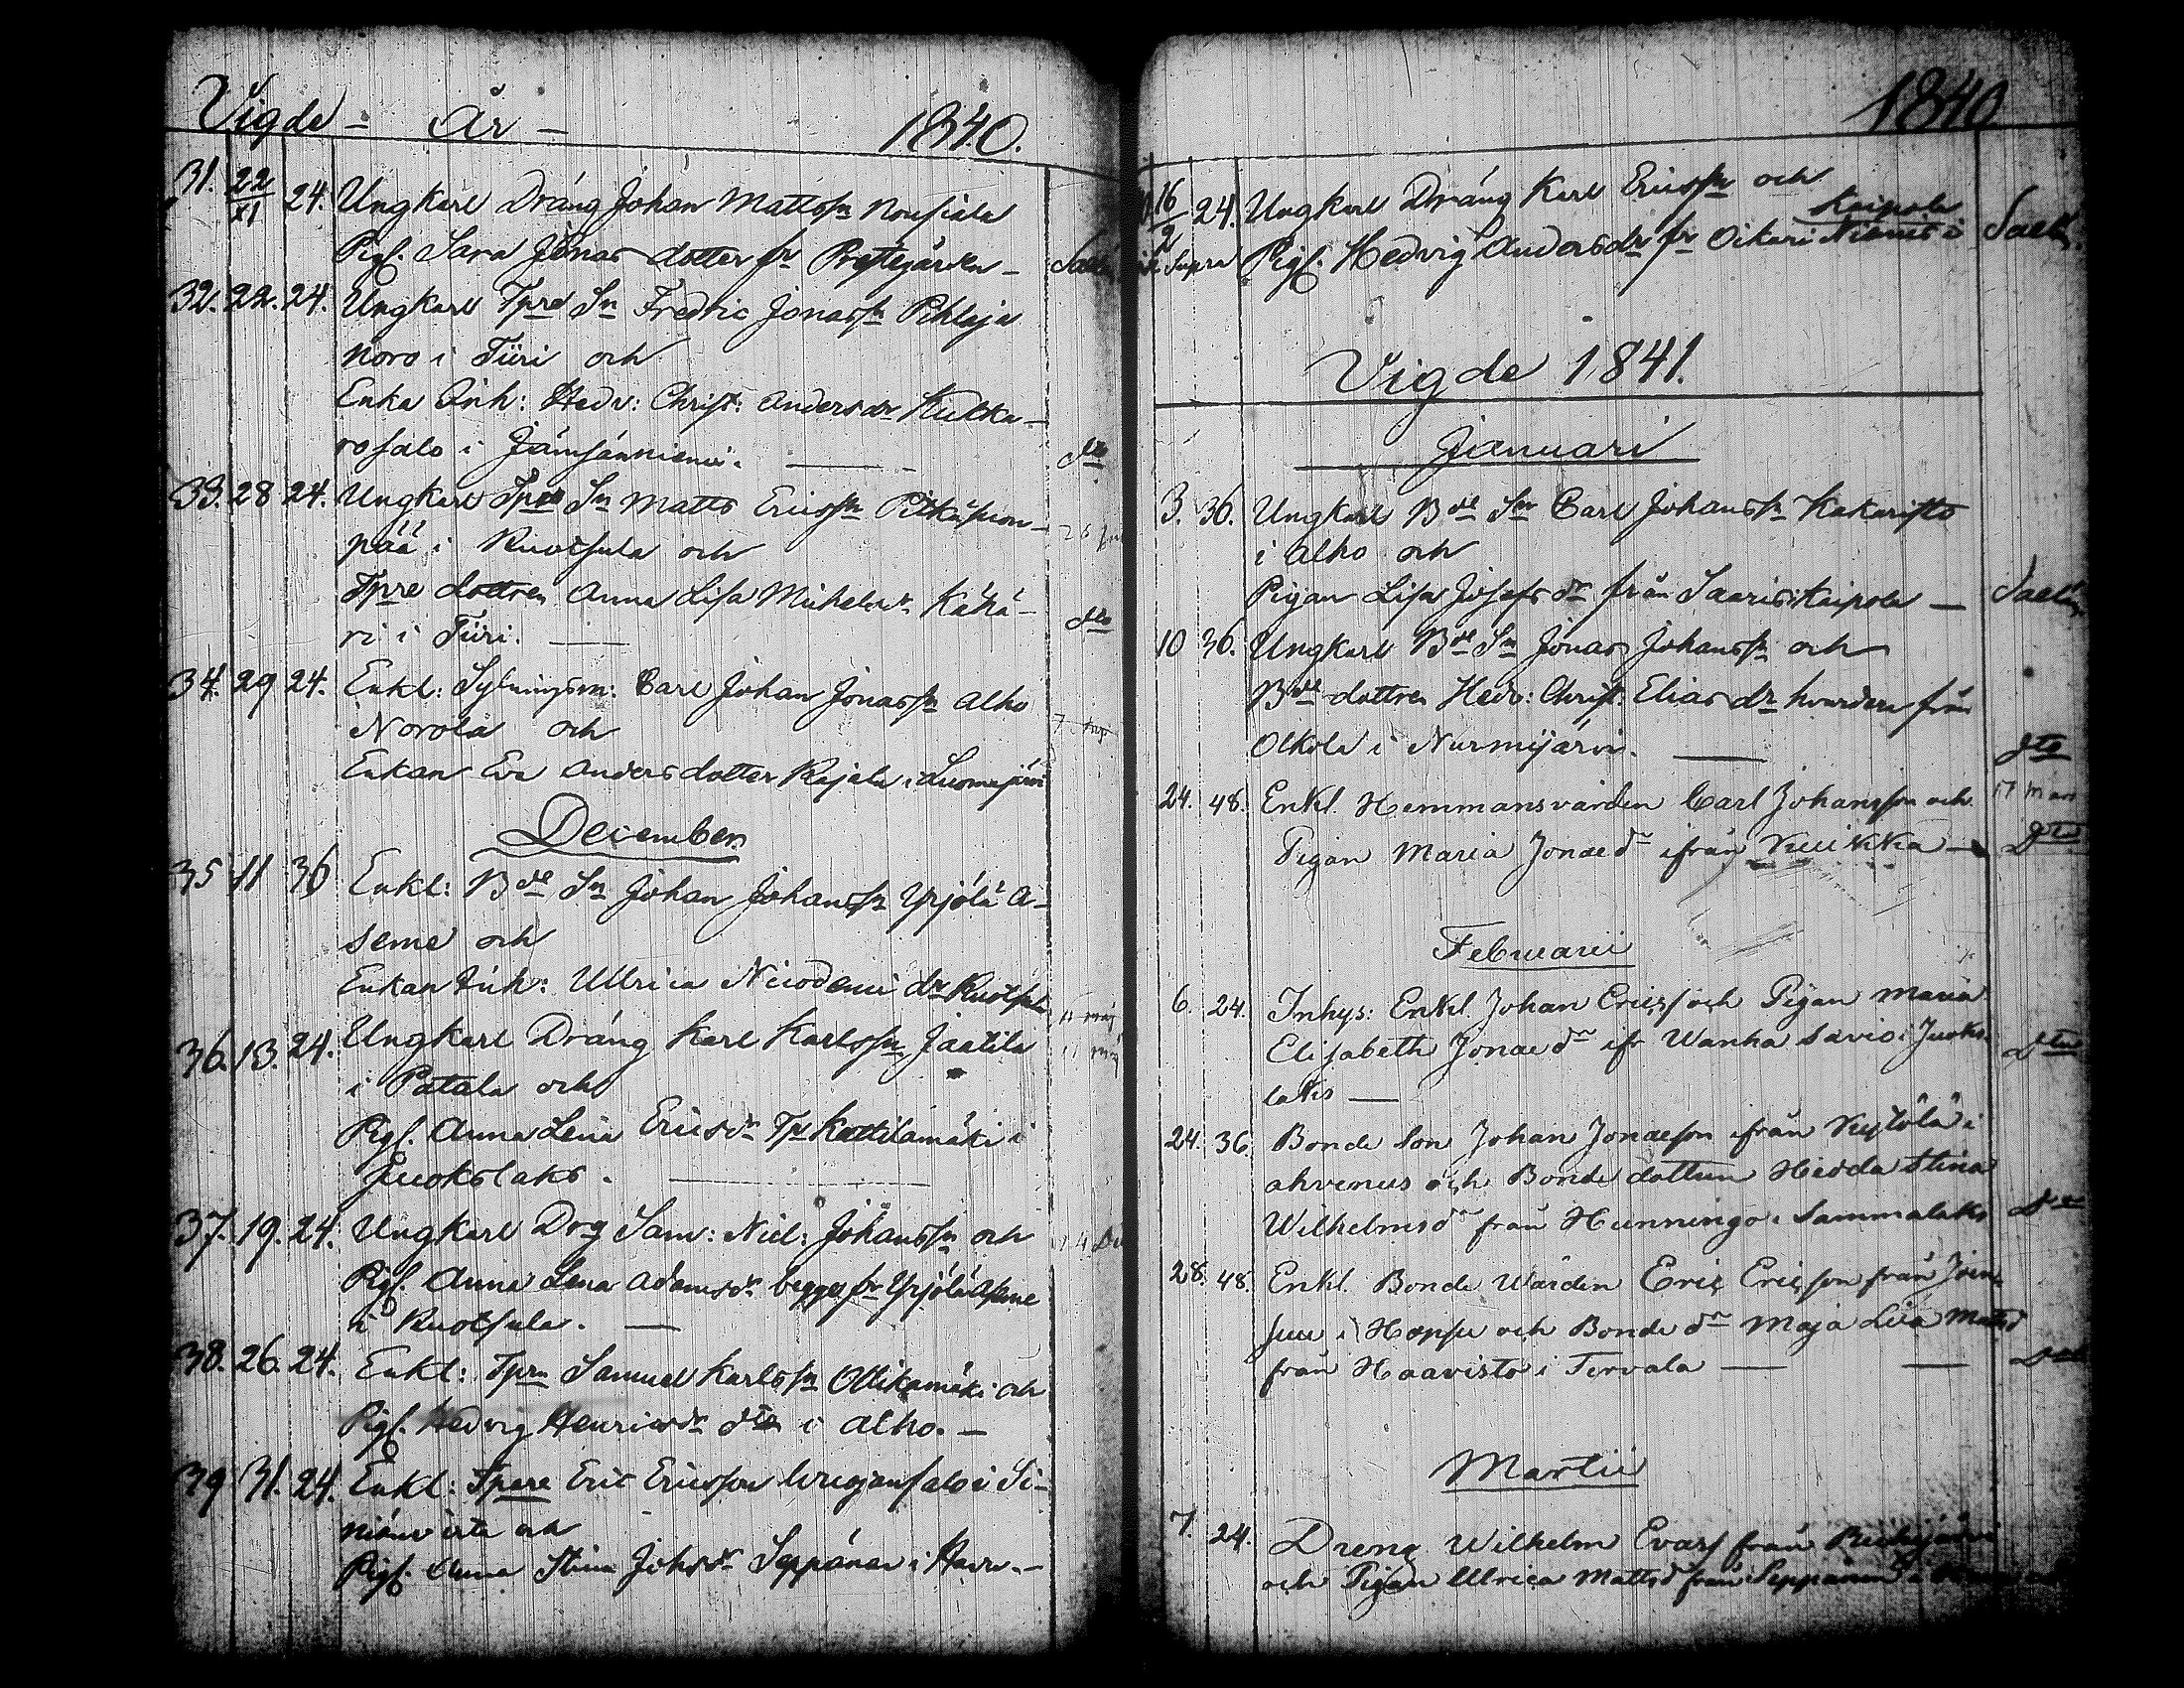 Vigde - År - 1840.
31. 22/XI 24. Ungkarl Dräng Johan Mattssn Nousiala
Pigs. Sara Jonas dotter fr Prestegården -
32. 22. 24. Ungkarl Tpre Sn Fredric Jonassn Pihlaja
noro i Tiiri och
Enka Inh: Hedv: Christ: Andersdr Kulka-
rosalo i Jämsänniemi. dto
33. 28 24. Ungkarl Tpre Sn Matts Ericssn Pitkäsuon-
pää i Ruotsula och
Tpre dottren Anna Lisa Michelsdr Kähä-
ri i Tiiri. dto
34. 29 24. Enkl: Carl Johan Jonassn Alho
Norola och
Enkan Eva Anders dotter Rajala i Luomejärvi
December
35 11 36 Enkl: Bde Sn Johan Johanssn Yrjölä A-
seme och
Enkan Inh: Ullrica Nicodemi dr Ruotsula
36. 13. 24. Ungkarl Dräng Karl Karlssn Jaatila
i Patala och
Pigs. Anna Lena Ericsdr Tp Kattilamäki i
Juokslaks.
37. 19. 24. Ungkarl Drg Sam: Nicl: Johanssn och
Pigs. Anna Lena Adamsdr begge fr Yrjölä Aseme
i Ruotsula.
38. 26. 24. Enkl: Tprn Samuel Karlssn Ollikamäki och
Pigs. Hedvig Henricsdr dto i Alho. -
39 31. 24. Enkl: Tpare Eric Ericsson i Si-
och
Pigs. Anna Stina Johsdr Seppänen i
1840
16/2 24. Ungkarl Dräng Karl Ericssn och
Kaipola
Supra Pigs. Hedvig Andersdr fr Oikari i
Vigde 1841.
Januari
3. 36. Ungkarl Bde Sn Carl Johanssn Kakaristo
i Alho och
Pigan Lisa Josefs dr från Saaris i Kaipola -
10 36. Ungkarl Bde Sn Jonas Johanssn och
Bde dottren Hedv: Christ: Elias dr hvardera från
Olkola i Nurmijärvi. dto
24. 48. Enkl. Hemmansvärden Carl Johansson och 17 Mars
Pigan Maria Jonaedr ifrån Kuikka - Dto
Februarii
6. 24. Inhys: Enkl. Johan Ericss och Pigan Maria
Elisabeth Jonaedr ifr Wanha Savio i Juoks- Dto
laks -
24. 36. Bonde Son Johan Jonaeson ifrån i
Ahvenus och Bonde dottern Hedda Stina
Wilhelmsdr från Hunningo i Sammalaks Dto
28. 48. Enkl. Bonde Wärden Eric Ericsson från Joen-
suu i Hopsu och Bonde dr Maja Lisa Matsd
från Haavisto i Tervala - - Dto
Martii
7. 24. Dreng Wilhelm Evars från
och Pigan Ulrica Mattsd från Seppänen i